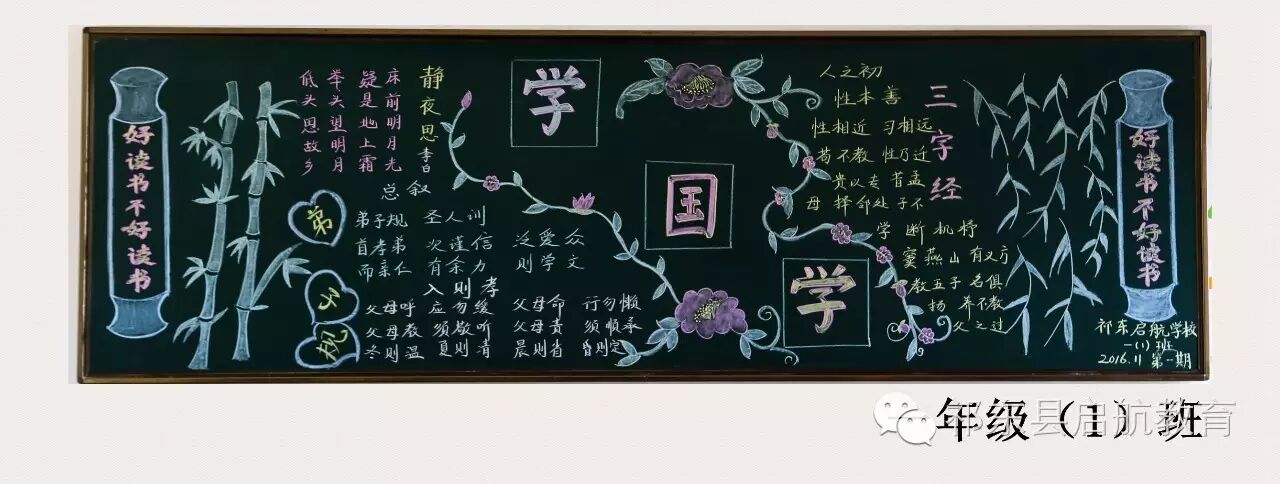 好读书不好读书
静夜思
李白
床前明月光
疑是地上霜
举头望明月
低头思故乡
弟子规
总叙
弟子规 圣人训
首孝弟 次谨信 泛爱众
而亲仁 有余力 则学文
入则孝
父母呼 应勿缓 父母命 行勿懒
父母教 须敬听 父母责 须顺承
冬则温 夏则清 晨则省 昏则定
学
国
学
三字经
人之初
性本善
性相近 习相远
苟不教 性乃迁
贵以专 昔孟
母 择邻处 子不
学 断机杼
窦燕山 有义方
教五子 名俱
扬 养不教
父之过
好读书不好读书
祁东启航学校
一(1)班
2016.11 第一期
年级（1）班
县启航教育